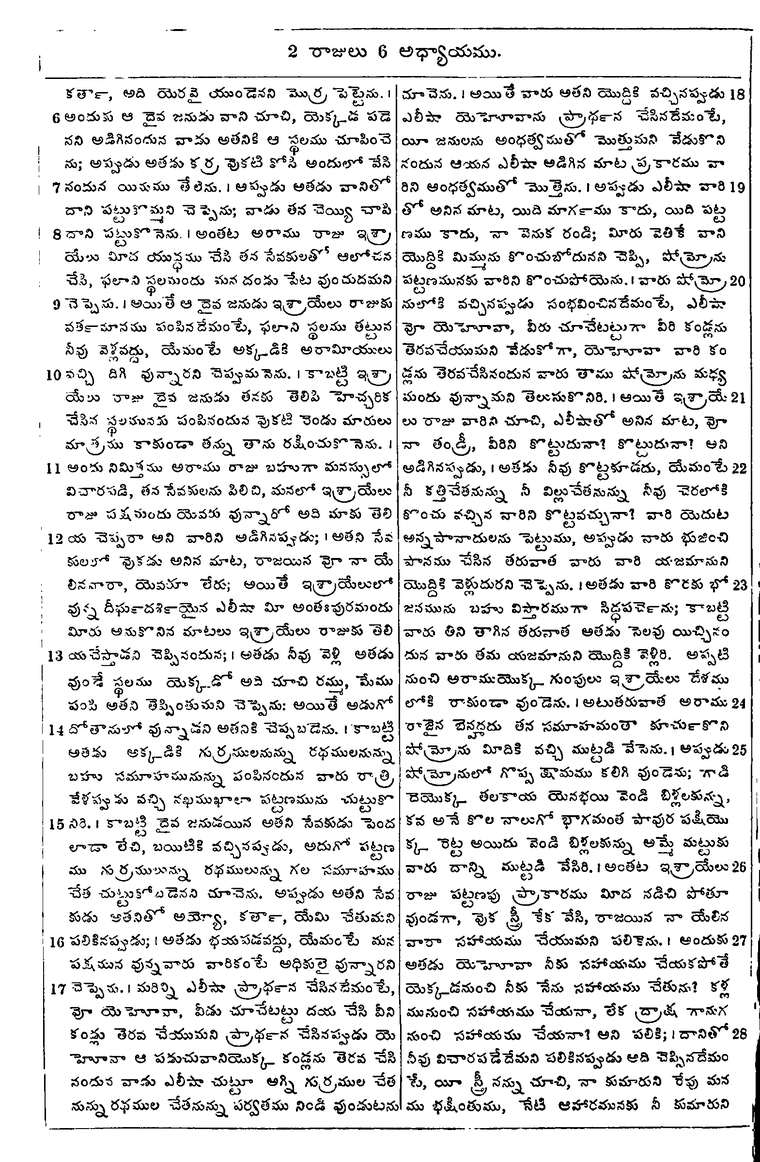 2 రాజులు 6 అధ్యాయము.
కర్తా, అది యెరవై యుండెనని మొర్ర పెట్టెను. ।
6 అందుకు ఆ దైవ జనుడు వాని చూచి, యెక్కడ పడె
నని అడిగినందున వాడు అతనికి ఆ స్థలము చూపించె
ను; అప్పుడు అతడు కర్ర వొకటి కోసి అందులో వేసి
7 నందున యినుము తేలెను. । అప్పుడు అతడు వానితో
దాని పట్టుకొమ్మని చెప్పెను; వాడు తన చెయ్యి చాపి
8 దాని పట్టుకొనెను. । అంతట అరాము రాజు ఇశ్రా
యేలు మీద యుద్ధము చేసి తన సేవకులతో ఆలోచన
చేసి, ఫలాని స్థలమందు మన దండు పేట వుంచుదమని
9 చెప్పెను. । అయితే ఆ దైవ జనుడు ఇశ్రాయేలు రాజుకు
వర్తమానము పంపినదేమంటే, ఫలాని స్థలము తట్టున
నీవు వెళ్లవద్దు, యేమంటే అక్కడికి అరామీయులు
10 వచ్చి దిగి వున్నారని చెప్పుమనెను. । కాబట్టి ఇశ్రా
యేలు రాజు దైవ జనుడు తనకు తెలిపి హెచ్చరిక
చేసిన స్థలమునకు పంపినందున వొకటి రెండు మారులు
మాత్రము కాకుండా తన్ను తాను రక్షించుకొనెను. ।
11 అందు నిమిత్తము అరాము రాజు బహుగా మనస్సులో
విచారపడి, తన సేవకులను పిలిచి, మనలో ఇశ్రాయేలు
రాజు పక్షమందు యెవరు వున్నారో అది మాకు తెలి
12 య చెప్పరా అని వారిని అడిగినప్పుడు; । అతని సేవ
కులలో వొకడు అనిన మాట, రాజయిన వొ నా యే
లినవారా, యెవరూ లేరు; అయితే ఇశ్రాయేలులో
వున్న దీర్ఘదర్శియైన ఎలీషా మీ అంతఃపురమందు
మీరు అనుకొనిన మాటలు ఇశ్రాయేలు రాజుకు తెలి
13 యచేస్తాడని చెప్పినందున; । అతడు నీవు వెళ్లి అతడు
వుండే స్థలము యెక్కడో అది చూచి రమ్ము, మేము
పంపి అతని తెప్పింతుమని చెప్పెను: అయితే అడుగో
14 దోతానులో వున్నాడని అతనికి చెప్పబడెను. । కాబట్టి
అతడు అక్కడికి గుర్రములనున్ను రథములనున్ను
బహు సమూహమునున్ను పంపినందున వారు రాత్రి
వేళప్పుడు వచ్చి నఖముఖాలా పట్టణమును చుట్టుకొ
15 నిరి. । కాబట్టి దైవ జనుడయిన అతని సేవకుడు పెంద
లాడా లేచి, బయిటికి వచ్చినప్పుడు, అదుగో పట్టణ
ము గుర్రములున్ను రథములున్ను గల సమూహము
చేత చుట్టుకోబడెనని చూచెను. అప్పుడు అతని సేవ
కుడు అతనితో అయ్యో, కర్తా, యేమి చేతుమని
16 పలికినప్పుడు; । అతడు భయపడవద్దు, యేమంటే మన
పక్షమున వున్నవారు వారికంటే అధికులై వున్నారని
17 చెప్పెను. । మరిన్ని ఎలీషా ప్రార్థన చేసినదేమంటే,
వొ యెహోవా, వీడు చూచేటట్టు దయ చేసి వీని
కండ్లు తెరవ చేయుమని ప్రార్థన చేసినప్పుడు యె
హోవా ఆ పడుచువానియొక్క కండ్లను తెరవ చేసి
నందున వాడు ఎలీషా చుట్టూ అగ్ని గుర్రముల చేత
నున్ను రథముల చేతనున్ను పర్వతము నిండి వుండుటను
చూచెను. । అయితే వారు అతని యొద్దికి వచ్చినప్పుడు 18
ఎలీషా యెహోవాను ప్రార్థన చేసినదేమంటే,
యీ జనులను అంధత్వముతో మొత్తుమని వేడుకొని
నందున ఆయన ఎలీషా అడిగిన మాట ప్రకారము వా
రిని అంధత్వముతో మొత్తెను. । అప్పుడు ఎలీషా వారి 19
తో అనిన మాట, యిది మార్గము కాదు, యిది పట్ట
ణము కాదు, నా వెనుక రండి; మీరు వెతికే వాని
యొద్దికి మిమ్మును కొంచుబోదునని చెప్పి, షోమ్రోను
పట్టణమునకు వారిని కొంచుపోయెను. । వారు షోమ్రో 20
నులోకి వచ్చినప్పుడు సంభవించినదేమంటే, ఎలీషా
వొ యెహోవా, వీరు చూచేటట్టుగా వీరి కండ్లను
తెరవచేయుమని వేడుకోగా, యెహోవా వారి కం
డ్లను తెరవచేసినందున వారు తాము షోమ్రోను మధ్య
మందు వున్నామని తెలుసుకొనిరి. । అయితే ఇశ్రాయే 21
లు రాజు వారిని చూచి, ఎలీషాతో అనిన మాట, వొ
నా తండ్రీ, వీరిని కొట్టుదునా? కొట్టుదునా? అని
అడిగినప్పుడు, । అతడు నీవు కొట్టకూడదు, యేమంటే 22
నీ కత్తిచేతనున్ను నీ విల్లుచేతనున్ను నీవు చెరలోకి
కొంచు వచ్చిన వారిని కొట్టవచ్చునా? వారి యెదుట
అన్నపానాదులను పెట్టుము, అప్పుడు వారు భుజించి
పానము చేసిన తరువాత వారు వారి యజమానుని
యొద్దికి వెళ్లుదురని చెప్పెను. । అతడు వారి కొరకు భో 23
జనమును బహు విస్తారముగా సిద్ధపర్చెను; కాబట్టి
వారు తిని తాగిన తరువాత అతడు సెలవు యిచ్చినం
దున వారు తమ యజమానుని యొద్దికి వెళ్లిరి. అప్పటి
నుంచి అరాముయొక్క గుంపులు ఇశ్రాయేలు దేశము
లోకి రాకుండా వుండెను. । అటుతరువాత అరాము 24
రాజైన బెన్హదదు తన సమూహమంతా కూర్చుకొని
షోమ్రోను మీదికి వచ్చి ముట్టడి వేసెను. । అప్పుడు 25
షోమ్రోనులో గొప్ప క్షామము కలిగి వుండెను; గాడి
దెయొక్క తలకాయ యెనభయి వెండి బిళ్లలకున్ను,
కవ అనే కొల నాలుగో భాగమంత పావుర పక్షియొ
క్క రెట్ట అయిదు వెండి బిళ్లలకున్ను అమ్మే మట్టుకు
వారు దాన్ని ముట్టడి వేసిరి. । అంతట ఇశ్రాయేలు 26
రాజు పట్టణపు ప్రాకారము మీద నడిచి పోతూ
వుండగా, వొక స్త్రీ కేక వేసి, రాజయిన నా యేలిన
వారా సహాయము చేయుమని పలికెను. । అందుకు 27
అతడు యెహోవా నీకు సహాయము చేయకపోతే
యెక్కడనుంచి నీకు నేను సహాయము చేతును? కళ్ల
మునుంచి సహాయము చేయనా, లేక ద్రాక్ష గానుగ
నుంచి సహాయము చేయనా? అని పలికి; । దానితో 28
నీవు విచారపడేదేమని పలికినప్పుడు అది చెప్పినదేమం
టే, యీ స్త్రీ నన్ను చూచి, నా కుమారుని రేపు మన
ము భక్షింతుము, నేటి ఆహారమునకు నీ కుమారుని